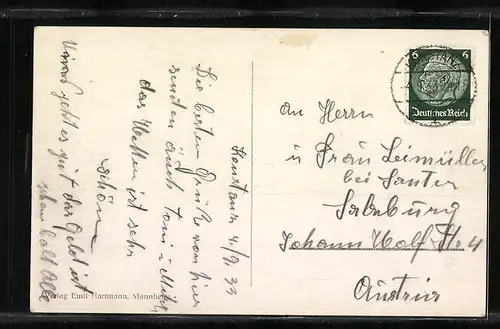 Konstanz 4/9 33
Die besten Grüße von hier
senden Euch Toni u
das Wetter ist sehr
schön
Uns geht es gut das Geld ist
schon bald alle
Verlag Emil Hartmann, Mannheim
KONSTANZ
6 6
Deutsches Reich
An Herrn
u Frau Leimüller
bei Santer
Salzburg
Johann Wolf Str 4
Austria